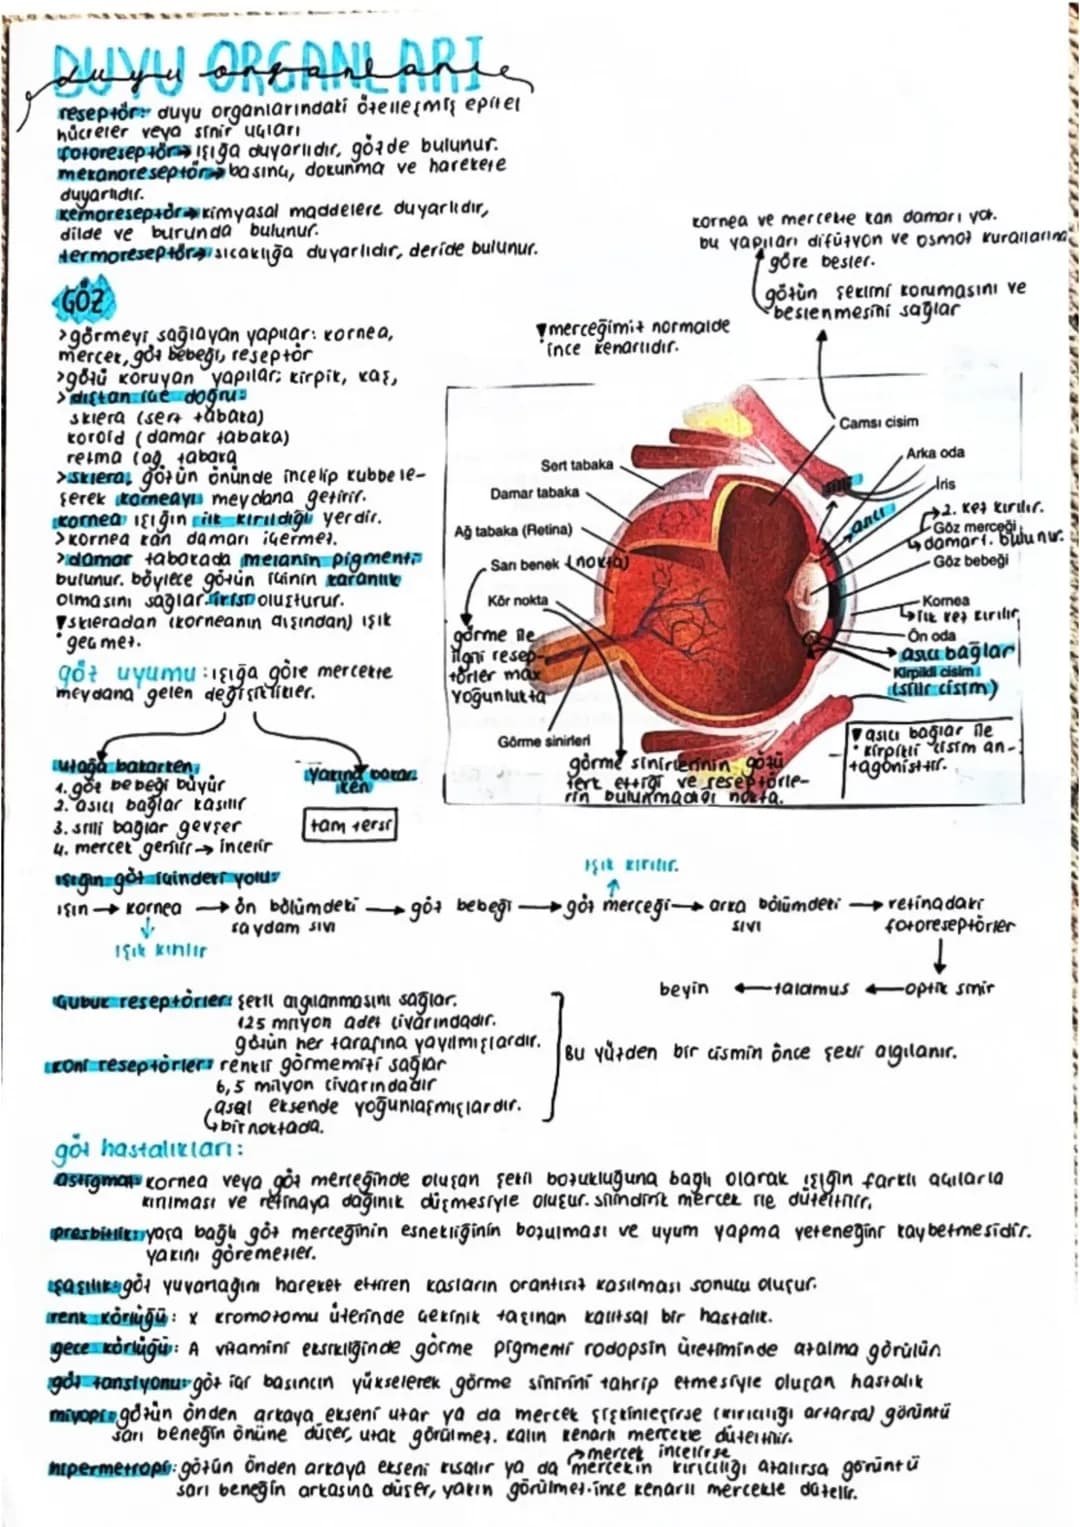 DUYU ORGANLARI
duyu organları
reseptör: duyu organlarındaki özelleşmiş epitel
hücreler veya sinir uçları
fotoreseptör→ ışığa duyarlıdır, gözde bulunur.
mekanoreseptör→ basınç, dokunma ve harekete
duyarlıdır.
kemoreseptör→ kimyasal maddelere duyarlıdır,
dilde ve burunda bulunur.
termoreseptör→ sıcaklığa duyarlıdır, deride bulunur.
kornea ve mercekte kan damarı yok.
bu yapıları difüzyon ve osmoz kurallarına
göre besler.
gözün şeklini korumasını ve
beslenmesini sağlar
merceğimiz normalde
ince kenarlıdır.
GÖZ
>görmeyi sağlayan yapılar: kornea,
mercek, göz bebeği, reseptör
>gözü koruyan yapılar: kirpik, kaş,
>dıştan içe doğru:
sklera (sert tabaka)
koroid (damar tabaka)
retina (ağ tabaka
>sklera, gözün önünde incelip kubbele-
şerek korneayı meydana getirir.
kornea ışığın ilk kırıldığı yerdir.
>kornea kan damarı içermez.
>damar tabakada melanin pigmenti
bulunur. böylece gözün içinin karanlık
olmasını sağlar. irisi oluşturur.
skleradan (korneanın dışından) ışık
geçmez.
göz uyumu: ışığa göre mercekte
meydana gelen değişiklikler.
Camsı cisim
Arka oda
İris
→2. kez kırılır.
Göz merceği
damarı. bulunur.
Göz bebeği
Kornea
→ilk kez kırılır
Ön oda
→ asıcı bağlar
Kirpikli cisim
(silli cisim)
Sert tabaka
Damar tabaka
Ağ tabaka (Retina)
Sarı benek (nokta)
Kör nokta
görme ile
ilgili resep-
törler max
yoğunlukta
Görme sinirleri
görme sinirlerinin gözü
terk ettiği ve reseptörle-
rin bulunmadığı nokta.
asıcı bağlar ile
kirpikli cisim an-
tagonisttir.
uzağa bakarken;
1. göz bebeği büyür
2. asıcı bağlar kasılır
3. silli bağlar gevşer
4. mercek gerilir→ incelir
yakına bakar-
ken
tam tersi
ışığın göz içindeki yolu:
ışık kırılır.
ışın → kornea → ön bölümdeki saydam sıvı → göz bebeği → göz merceği → arka bölümdeki sıvı → retinadaki fotoreseptörler
ışık kırılır
beyin ← talamus ← optik sinir
çubuk reseptörler: şekil algılanmasını sağlar.
125 milyon adet civarındadır.
gözün her tarafına yayılmışlardır.
koni reseptörler: renkli görmemizi sağlar
6,5 milyon civarındadır
asal eksende yoğunlaşmışlardır.
↳bir noktada.
Bu yüzden bir cismin önce şekli algılanır.
göz hastalıkları:
astigmat: kornea veya göz merceğinde oluşan şekil bozukluğuna bağlı olarak ışığın farklı açılarla
kırılması ve retinaya dağınık düşmesiyle oluşur. silindirik mercek ile düzeltilir.
presbitlik: yaşa bağlı göz merceğinin esnekliğinin bozulması ve uyum yapma yeteneğini kaybetmesidir.
yakını göremezler.
şaşılık: göz yuvarlağını hareket ettiren kasların orantısız kasılması sonucu oluşur.
renk körlüğü: x kromozomu üzerinde çekinik taşınan kalıtsal bir hastalık.
gece körlüğü: A vitamini eksikliğinde görme pigmenti rodopsin üretiminde azalma görülür.
göz tansiyonu: göz içi basıncın yükselerek görme sinirini tahrip etmesiyle oluşan hastalık
miyopi: gözün önden arkaya ekseni uzar ya da mercek şişkinleşirse (kırıcılığı artarsa) görüntü
sarı beneğin önüne düşer, uzak görülmez. kalın kenarlı mercekle düzeltilir.
→mercek incelirse
hipermetropi: gözün önden arkaya ekseni kısalır ya da mercekin kırıcılığı azalırsa görüntü
sarı beneğin arkasına düşer, yakın görülmez. ince kenarlı mercekle düzelir.